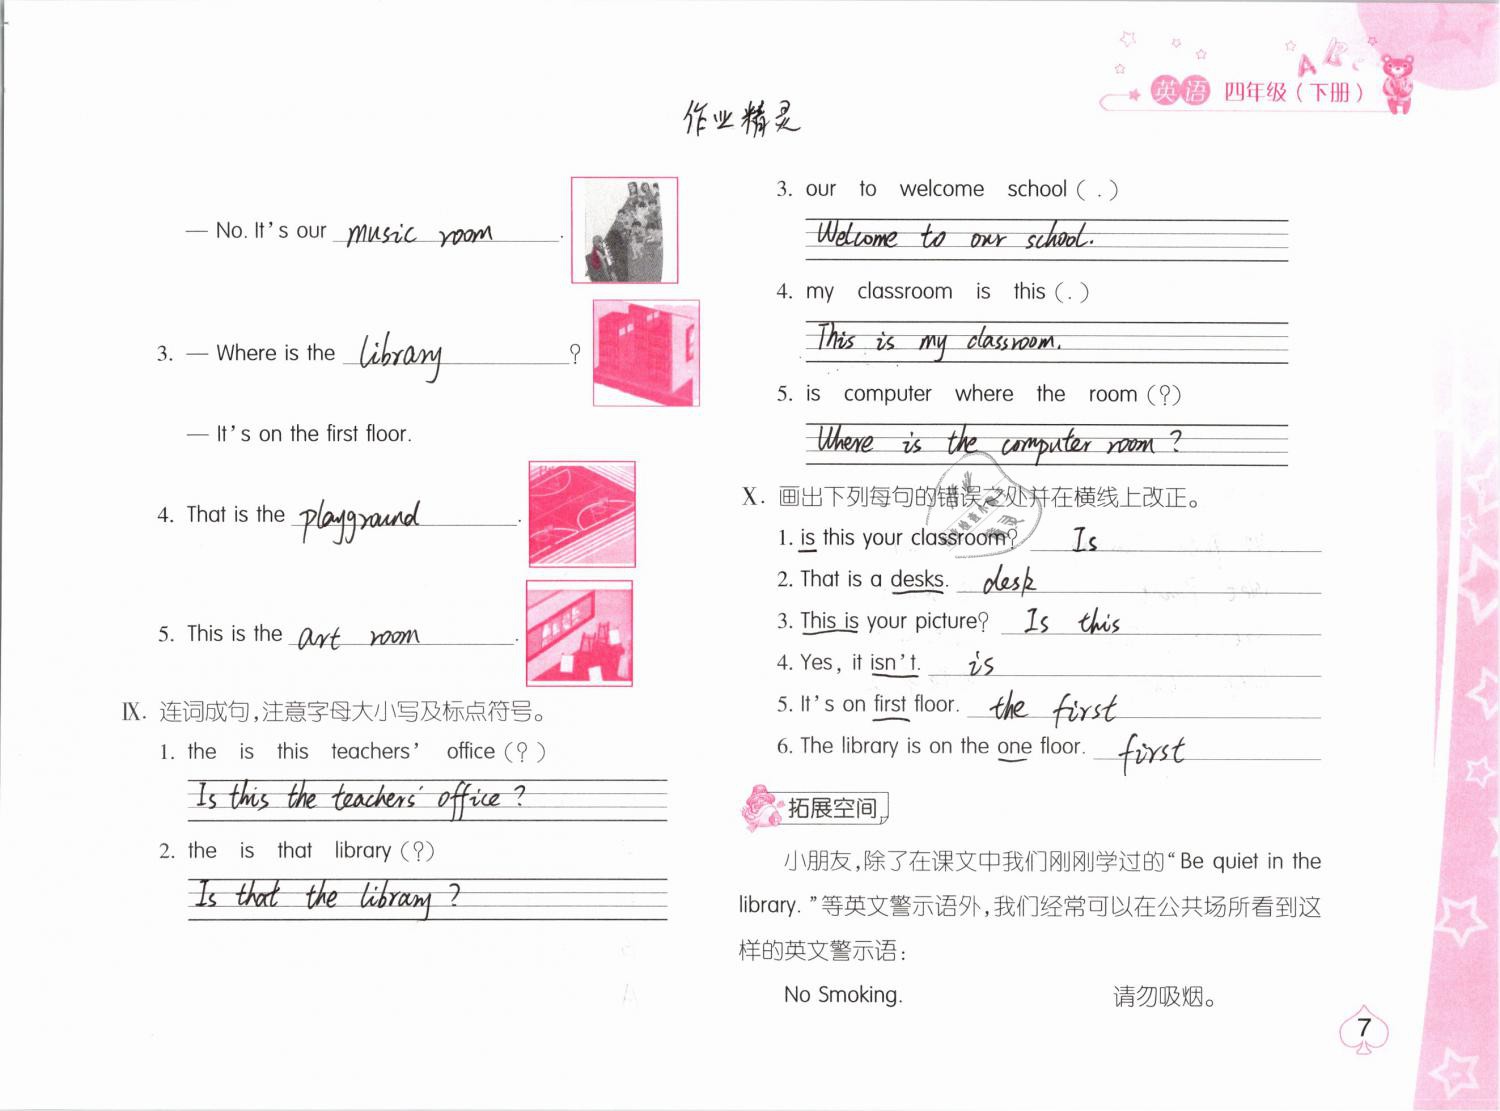 英语 四年级(下册)
作业精灵
— No. It's our music room.
3. — Where is the library?
— It's on the first floor.
4. That is the playground.
5. This is the art room.
Ⅸ. 连词成句,注意字母大小写及标点符号。
1. the is this teachers' office (?)
Is this the teachers' office?
2. the is that library (?)
Is that the library?
3. our to welcome school (.)
Welcome to our school.
4. my classroom is this (.)
This is my classroom.
5. is computer where the room (?)
Where is the computer room?
Ⅹ. 画出下列每句的错误之处并在横线上改正。
1. is this your classroom? Is
2. That is a desks. desk
3. This is your picture? Is this
4. Yes, it isn't. is
5. It's on first floor. the first
6. The library is on the one floor. first
拓展空间
小朋友,除了在课文中我们刚刚学过的“Be quiet in the
library.”等英文警示语外,我们经常可以在公共场所看到这
样的英文警示语:
No Smoking. 请勿吸烟。
7